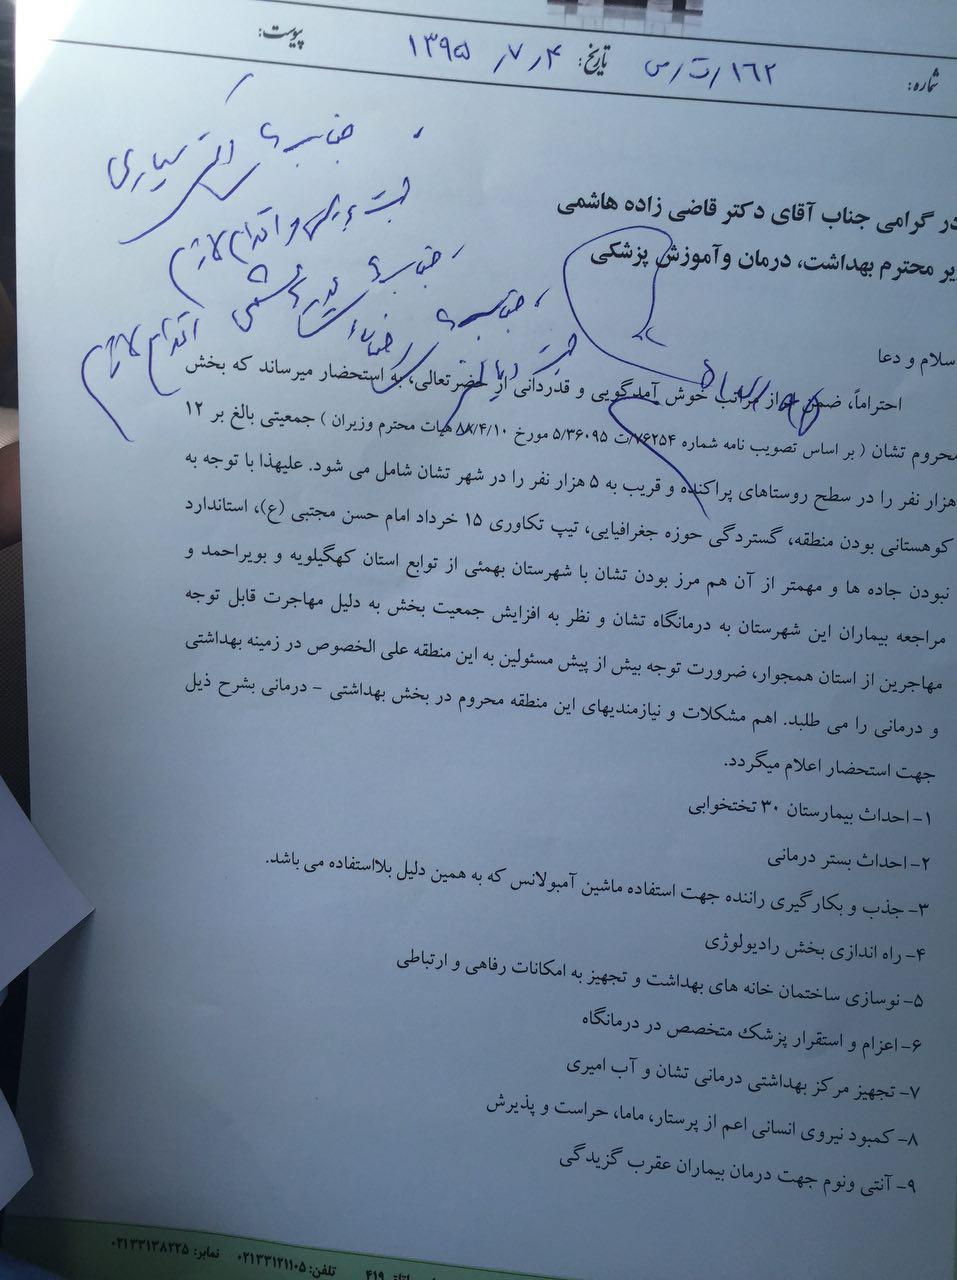 شماره: ۱۶۲/ت/س تاریخ: ۱۳۹۵/۷/۴ پیوست:
در گرامی جناب آقای دکتر قاضی زاده هاشمی
یر محترم بهداشت، درمان وآموزش پزشکی
سلام و دعا
احتراماً، ضمن از مراتب خوش آمدگویی و قدردانی از حضرتعالی، به استحضار میرساند که بخش
محروم تشان ( بر اساس تصویب نامه شماره ۷۶۲۵۴/ت ۵/۳۶۰۹۵ مورخ ۸۸/۴/۱۰ هیات محترم وزیران ) جمعیتی بالغ بر ۱۲
هزار نفر را در سطح روستاهای پراکنده و قریب به ۵ هزار نفر را در شهر تشان شامل می شود. علیهذا با توجه به
کوهستانی بودن منطقه، گستردگی حوزه جغرافیایی، تیپ تکاوری ۱۵ خرداد امام حسن مجتبی (ع)، استاندارد
نبودن جاده ها و مهمتر از آن هم مرز بودن تشان با شهرستان بهمئی از توابع استان کهگیلویه و بویراحمد و
مراجعه بیماران این شهرستان به درمانگاه تشان و نظر به افزایش جمعیت بخش به دلیل مهاجرت قابل توجه
مهاجرین از استان همجوار، ضرورت توجه بیش از پیش مسئولین به این منطقه علی الخصوص در زمینه بهداشتی
و درمانی را می طلبد. اهم مشکلات و نیازمندیهای این منطقه محروم در بخش بهداشتی - درمانی بشرح ذیل
جهت استحضار اعلام میگردد.
۱- احداث بیمارستان ۳۰ تختخوابی
۲- احداث بستر درمانی
۳- جذب و بکارگیری راننده جهت استفاده ماشین آمبولانس که به همین دلیل بلااستفاده می باشد.
۴- راه اندازی بخش رادیولوژی
۵- نوسازی ساختمان خانه های بهداشت و تجهیز به امکانات رفاهی و ارتباطی
۶- اعزام و استقرار پزشک متخصص در درمانگاه
۷- تجهیز مرکز بهداشتی درمانی تشان و آب امیری
۸- کمبود نیروی انسانی اعم از پرستار، ماما، حراست و پذیرش
۹- آنتی ونوم جهت درمان بیماران عقرب گزیدگی
اتاق ۴۱۹ تلفن: ۰۲۱۳۳۱۲۱۱۰۵ نمابر: ۰۲۱۳۳۱۳۸۲۲۵